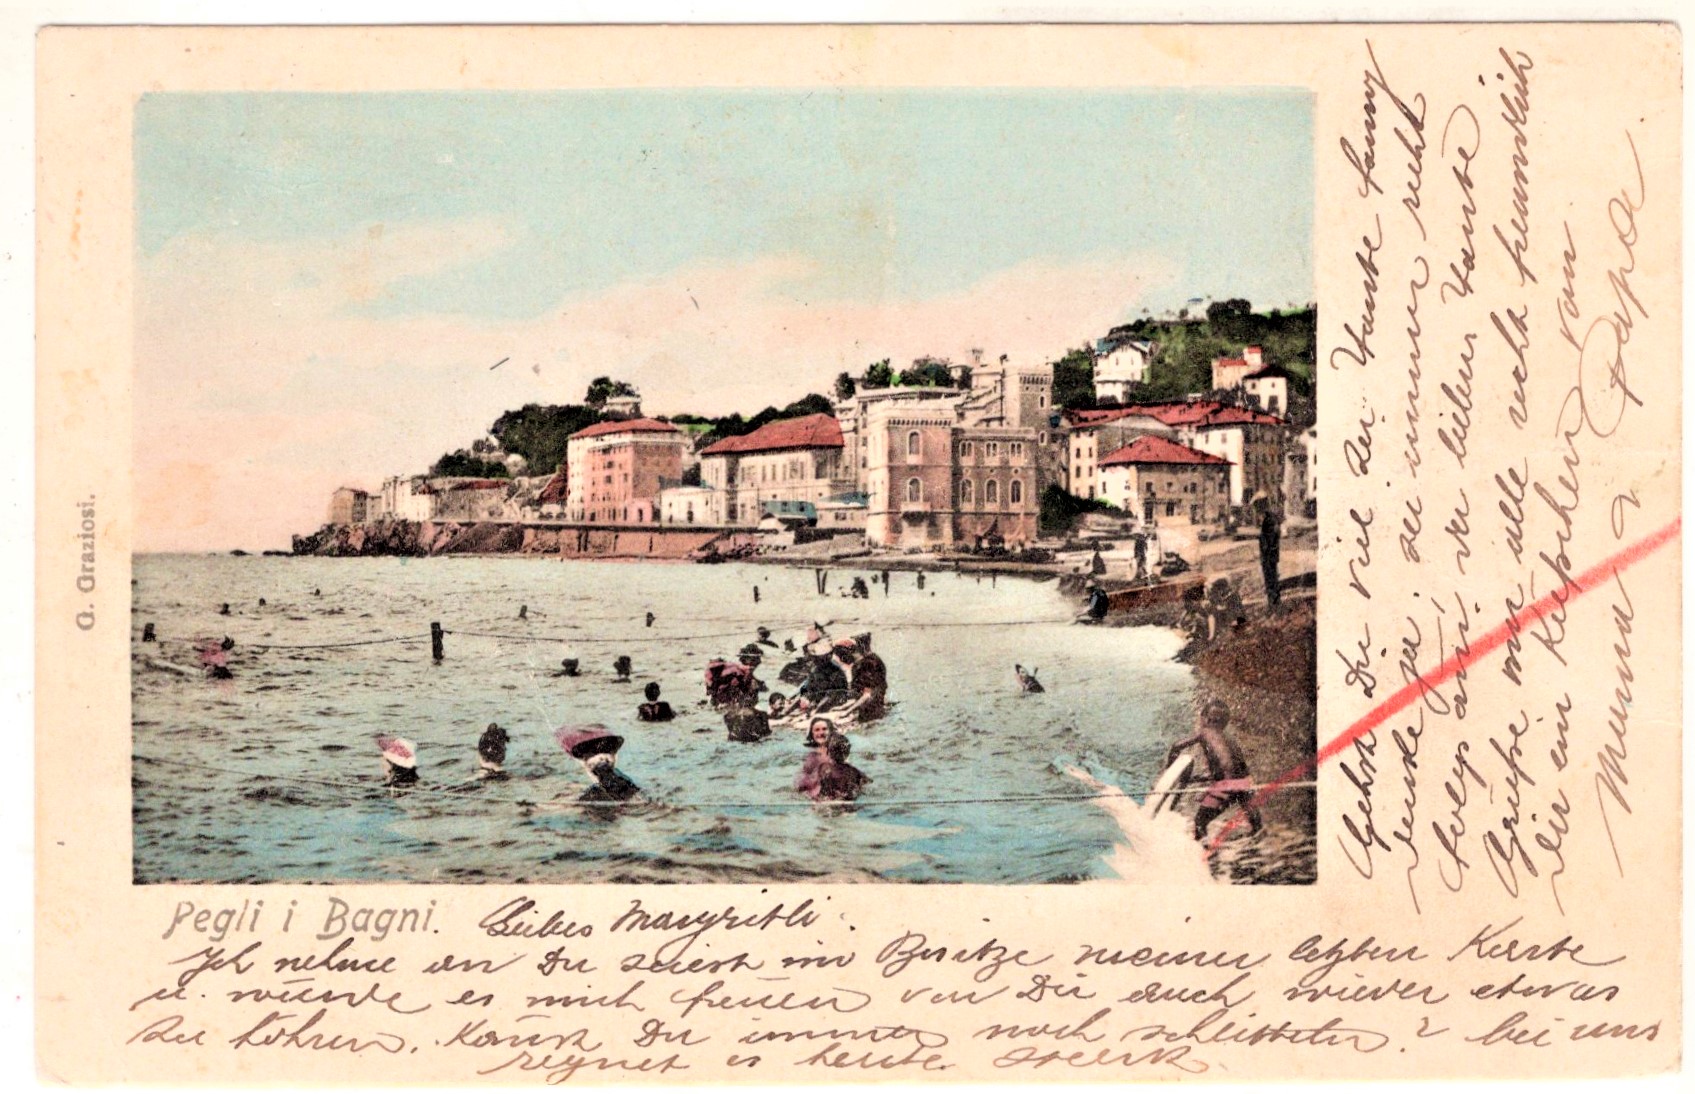 G. Graziosi.
Pegli i Bagni. Liebes Margritli!
Ich nehme an Du seiest im Besitze meiner letzten Karte
u. würde es mich freuen von Dir auch wieder etwas
zu höhren. Kanst Du immer noch schlitteln? bei uns
regnet es heute stark.
Gehst Du viel zu Tante Fanny
denke ja, sei immer recht
mit der lieben Tante
Grüsse mir alle recht freundlich
Dir ein Küsschen von
Mama & Papa